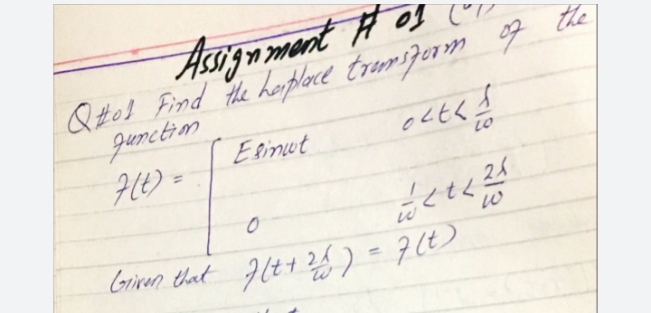 Assignment # 01
Q#01 Find the Laplace transform of the
function
f(t) = [ E sinωt 0<t<λ/ω
0 1/ω<t<2λ/ω
Given that f(t+2λ/ω) = f(t)